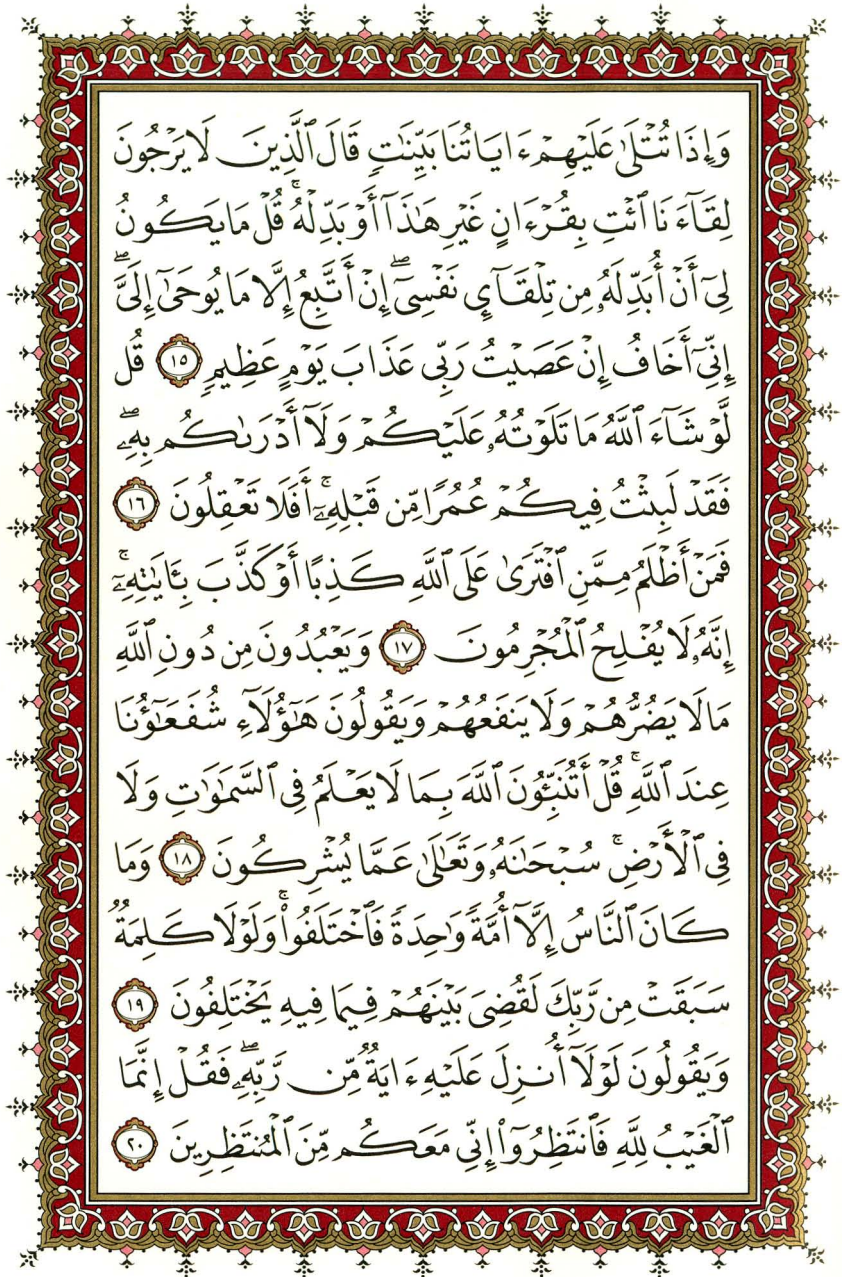 وَإِذَا تُتۡلَىٰ عَلَيۡهِمۡ ءَايَاتُنَا بَيِّنَٰتٖ قَالَ ٱلَّذِينَ لَا يَرۡجُونَ
لِقَآءَنَا ٱئۡتِ بِقُرۡءَانٍ غَيۡرِ هَٰذَآ أَوۡ بَدِّلۡهُۚ قُلۡ مَا يَكُونُ
لِيٓ أَنۡ أُبَدِّلَهُۥ مِن تِلۡقَآيِٕ نَفۡسِيٓۖ إِنۡ أَتَّبِعُ إِلَّا مَا يُوحَىٰٓ إِلَيَّۖ
إِنِّيٓ أَخَافُ إِنۡ عَصَيۡتُ رَبِّي عَذَابَ يَوۡمٍ عَظِيمٖ ١٥ قُل
لَّوۡ شَآءَ ٱللَّهُ مَا تَلَوۡتُهُۥ عَلَيۡكُمۡ وَلَآ أَدۡرَىٰكُم بِهِۦۖ
فَقَدۡ لَبِثۡتُ فِيكُمۡ عُمُرٗا مِّن قَبۡلِهِۦٓۚ أَفَلَا تَعۡقِلُونَ ١٦
فَمَنۡ أَظۡلَمُ مِمَّنِ ٱفۡتَرَىٰ عَلَى ٱللَّهِ كَذِبًا أَوۡ كَذَّبَ بِـَٔايَٰتِهِۦٓۚ
إِنَّهُۥ لَا يُفۡلِحُ ٱلۡمُجۡرِمُونَ ١٧ وَيَعۡبُدُونَ مِن دُونِ ٱللَّهِ
مَا لَا يَضُرُّهُمۡ وَلَا يَنفَعُهُمۡ وَيَقُولُونَ هَٰٓؤُلَآءِ شُفَعَٰٓؤُنَا
عِندَ ٱللَّهِۚ قُلۡ أَتُنَبِّـُٔونَ ٱللَّهَ بِمَا لَا يَعۡلَمُ فِي ٱلسَّمَٰوَٰتِ وَلَا
فِي ٱلۡأَرۡضِۚ سُبۡحَٰنَهُۥ وَتَعَٰلَىٰ عَمَّا يُشۡرِكُونَ ١٨ وَمَا
كَانَ ٱلنَّاسُ إِلَّآ أُمَّةٗ وَٰحِدَةٗ فَٱخۡتَلَفُواْۚ وَلَوۡلَا كَلِمَةٞ
سَبَقَتۡ مِن رَّبِّكَ لَقُضِيَ بَيۡنَهُمۡ فِيمَا فِيهِ يَخۡتَلِفُونَ ١٩
وَيَقُولُونَ لَوۡلَآ أُنزِلَ عَلَيۡهِ ءَايَةٞ مِّن رَّبِّهِۦۖ فَقُلۡ إِنَّمَا
ٱلۡغَيۡبُ لِلَّهِ فَٱنتَظِرُوٓاْ إِنِّي مَعَكُم مِّنَ ٱلۡمُنتَظِرِينَ ٢٠